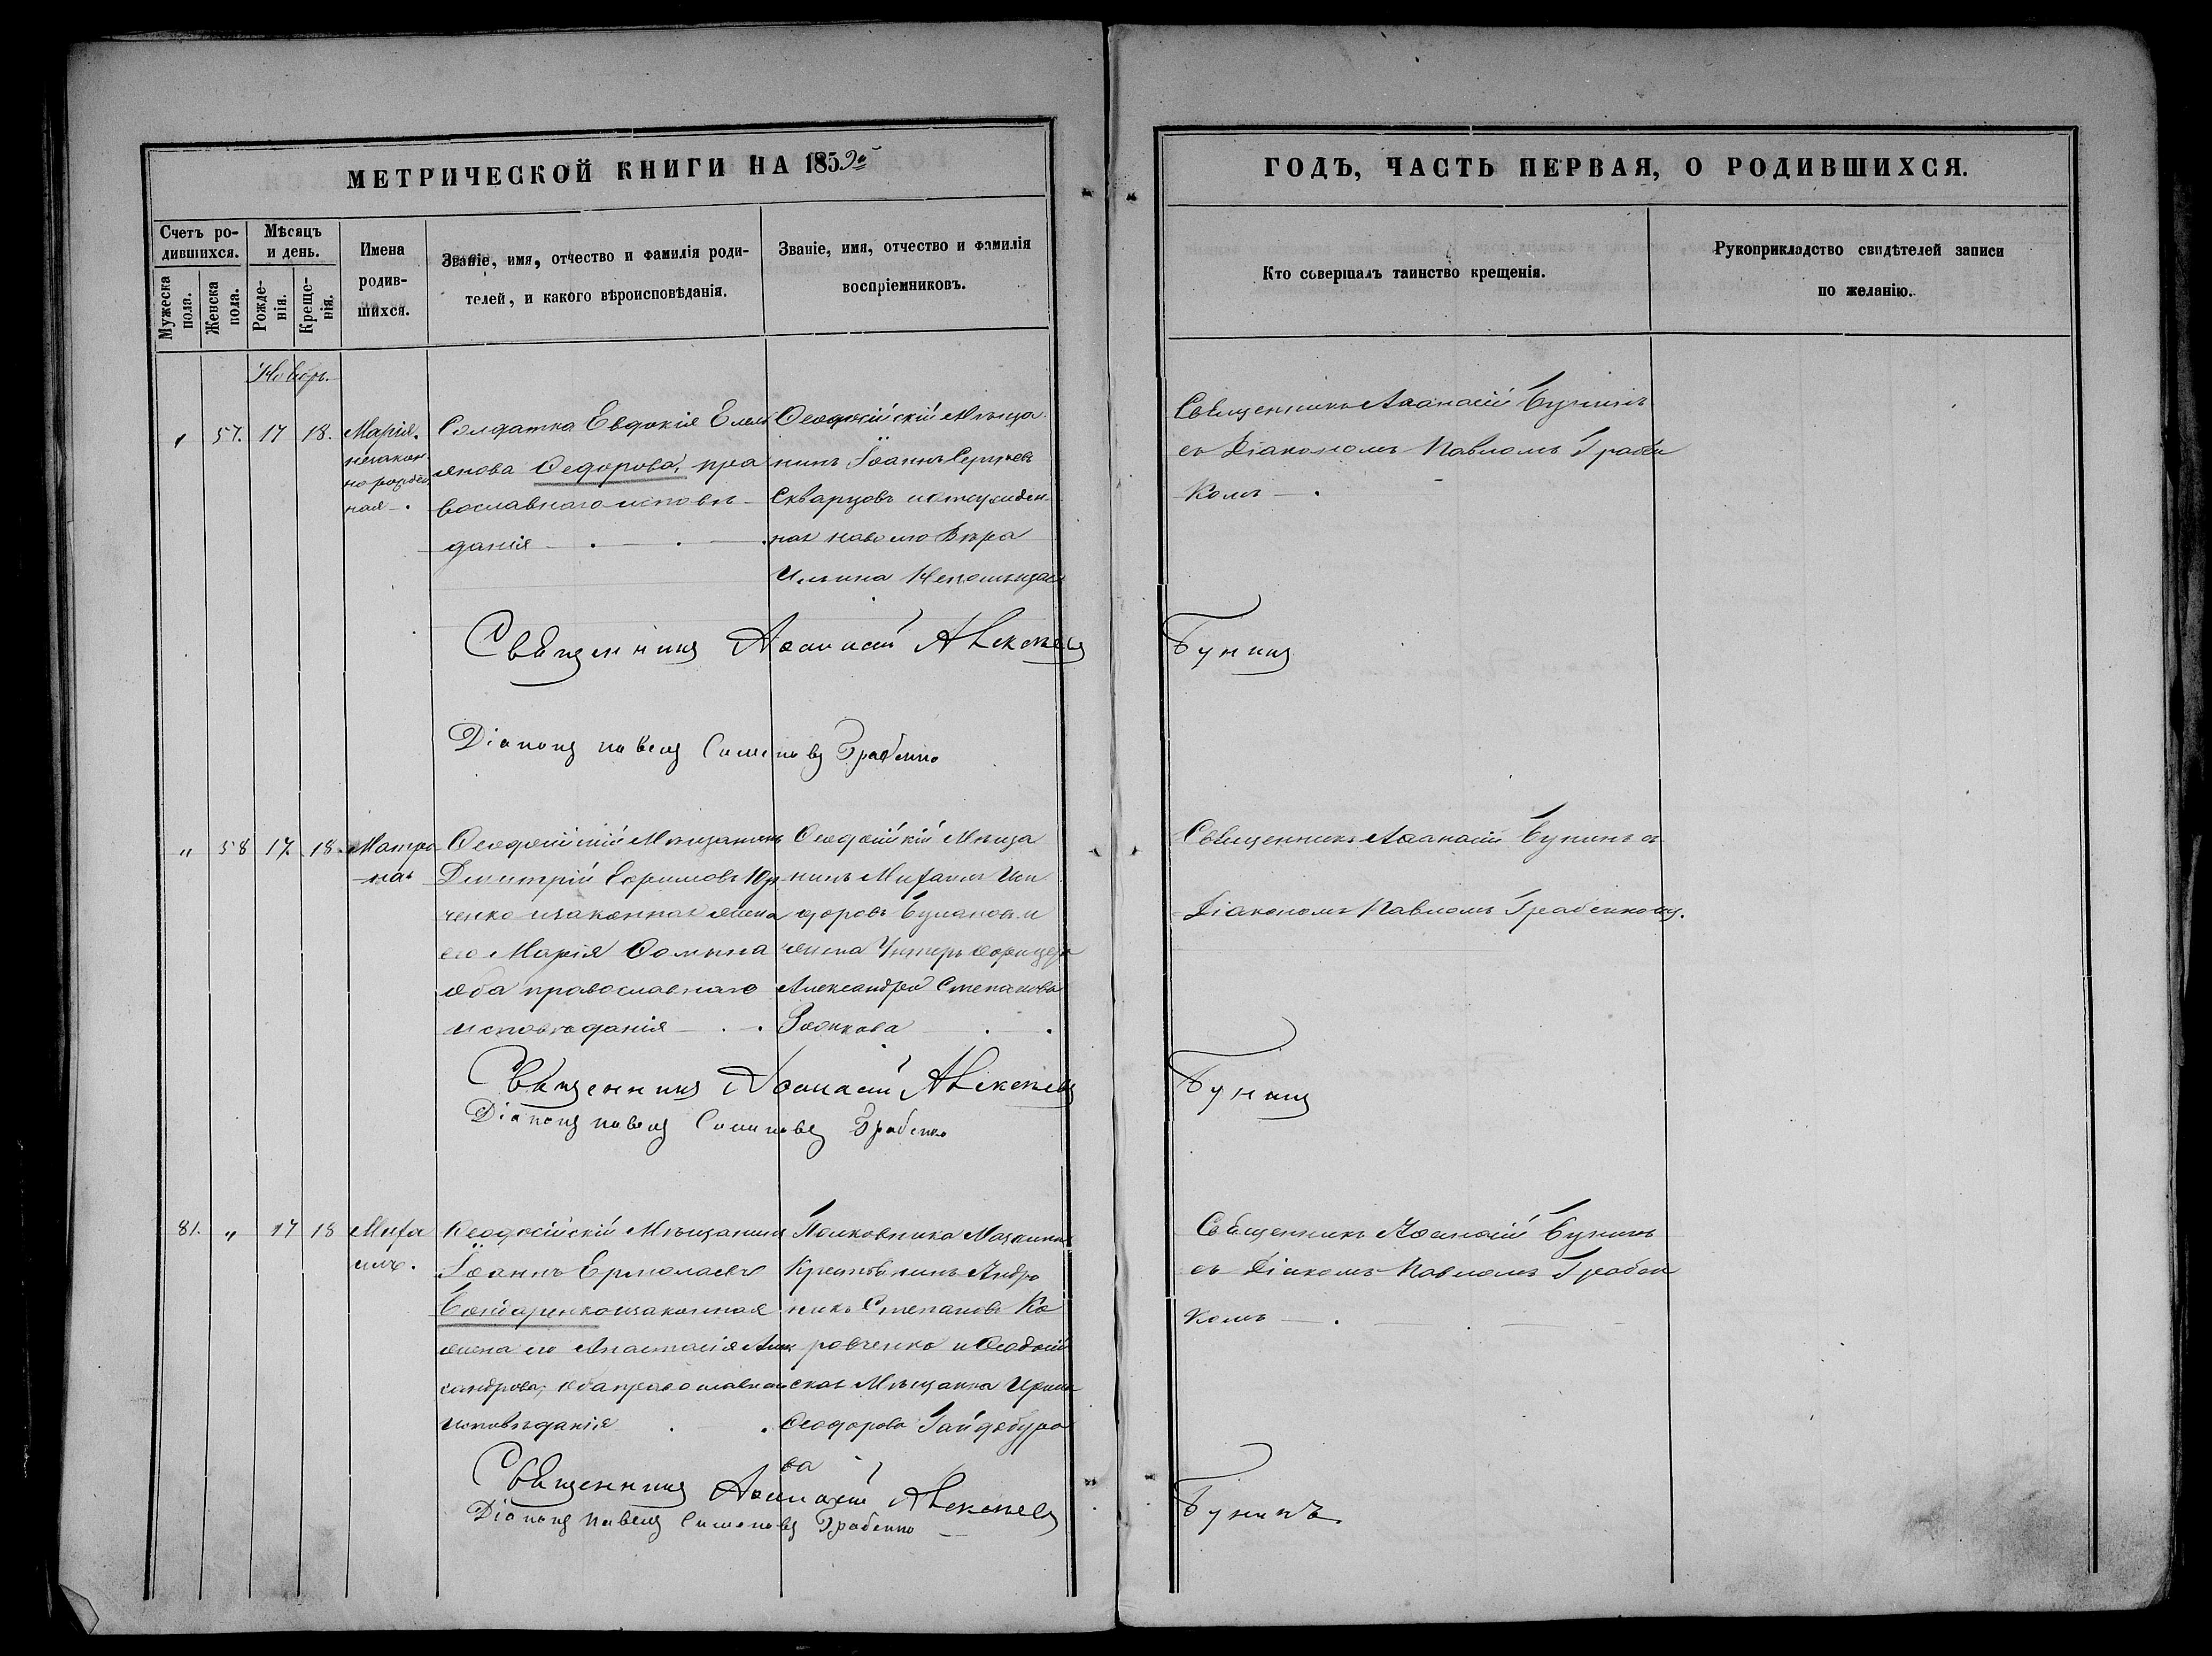 МЕТРИЧЕСКОЙ КНИГИ НА 1859й
ГОДЪ, ЧАСТЬ ПЕРВАЯ, О РОДИВШИХСЯ.
Счетъ ро-
дившихся.
Мужеска
пола.
Женска
пола.
Мѣсяцъ
и день.
Рожде-
нія.
Креще-
нія.
Имена
родив-
шихся.
Званіе, имя, отчество и фамилія роди-
телей, и какого вѣроисповѣданія.
Званіе, имя, отчество и фамилія
воспріемниковъ.
Кто совершалъ таинство крещенія.
Рукоприкладство свидѣтелей записи
по желанію.
Ноябрь.
57. 17 18.
Марія.
незакон
норожден
ная.
Солдатка Евдокія Емель
янова Ѳедорова, пра
вославнаго исповѣ-
данія
Ѳеодосійскій Мѣща
нинъ Іоаннъ Сергѣевъ
Скварцовъ
Вѣра
Ильина
Священникъ Аѳанасій Бунинъ
съ Діакономъ Павломъ Грабен
комъ
Священникъ Аѳанасій Алексѣевъ
Бунинъ
Діаконъ Павелъ Симеоновъ Грабенко
" 58 17. 18.
Матро
на
Ѳеодосійскій Мѣщанинъ
Димитрій Ефимовъ Юр
ченко и законная жена
его Марія Ѳомина
оба православнаго
исповѣданія
Ѳеодосійскій Мѣща
нинъ Михаилъ Иси
доровъ Булановъ и
жена Унтеръ офицера
Александра Степанова
Священникъ Аѳанасій Бунинъ съ
Діакономъ Павломъ Грабенкомъ.
Священникъ Аѳанасій Алексѣевъ
Бунинъ
Діаконъ Павелъ Симеоновъ Грабенко
81. " 17 18
Миха
илъ.
Ѳеодосійскій Мѣщанинъ
Іоаннъ Ермолаевъ
Бондаренко и законная
жена его Анастасія Алек
сандрова, оба православнаго
исповѣданія
Полковника
Крестьянинъ Андро
никъ Степановъ Ко
ровченко и Ѳеодосій
ская Мѣщанка Ирина
Ѳеодорова Гайдабуро
ва
Священникъ Аѳанасій Бунинъ
съ Діакомъ Павломъ Грабен
комъ
Священникъ Аѳанасій Алексѣевъ
Бунинъ.
Діаконъ Павелъ Симеоновъ Грабенко